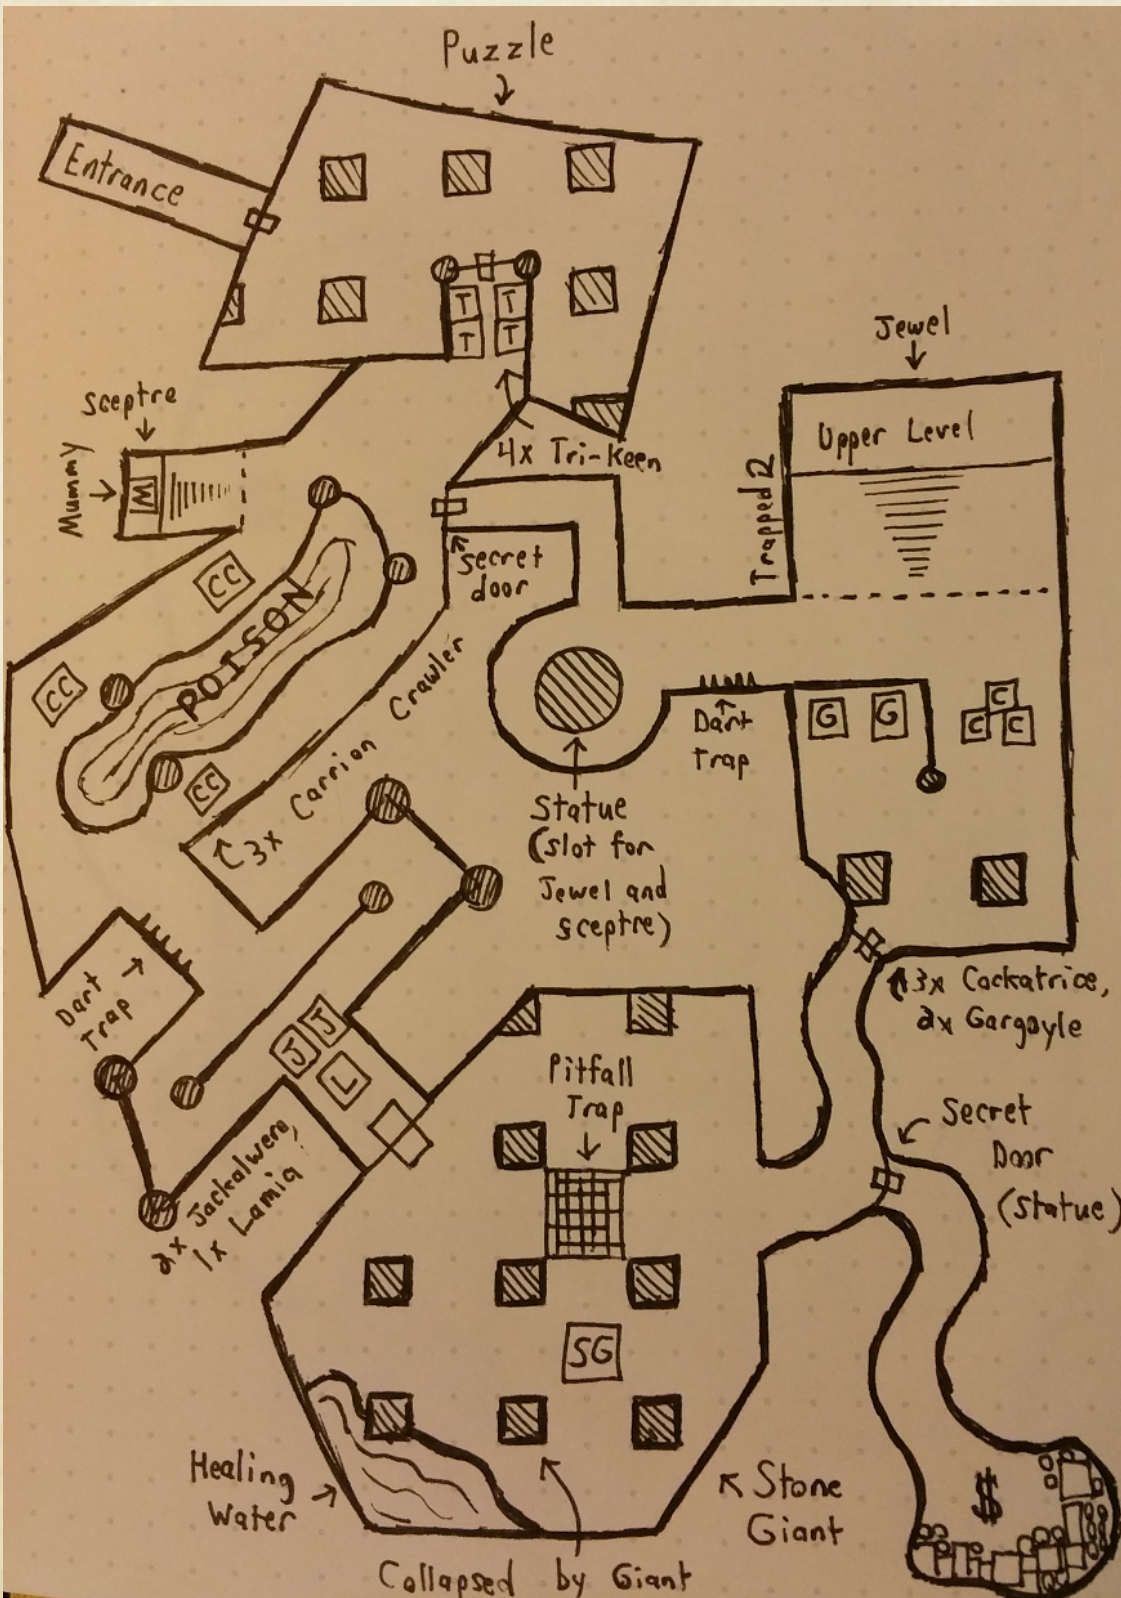 Puzzle
Entrance
T T
T T
Jewel
Upper Level
Sceptre
4x Tri-Keen
Mummy
M
Trapped
secret
door
CC
POISON
CC
CC
3x Carrion Crawler
G G
C
C C
Dart
trap
Statue
(slot for
Jewel and
sceptre)
Dart
Trap
3x Cockatrice,
2x Gargoyle
J J
L
Pitfall
Trap
Secret
Door
(statue)
2x Jackalwere,
1x Lamia
SG
$
Healing
Water
Stone
Giant
Collapsed by Giant